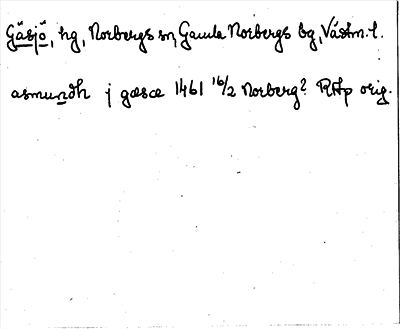 Gåsjö, hg, Norbergs sn, Gamla Norbergs bg, Västm. l.
asmundh j gæsæ 1461 16/2 Norberg? RAp orig.